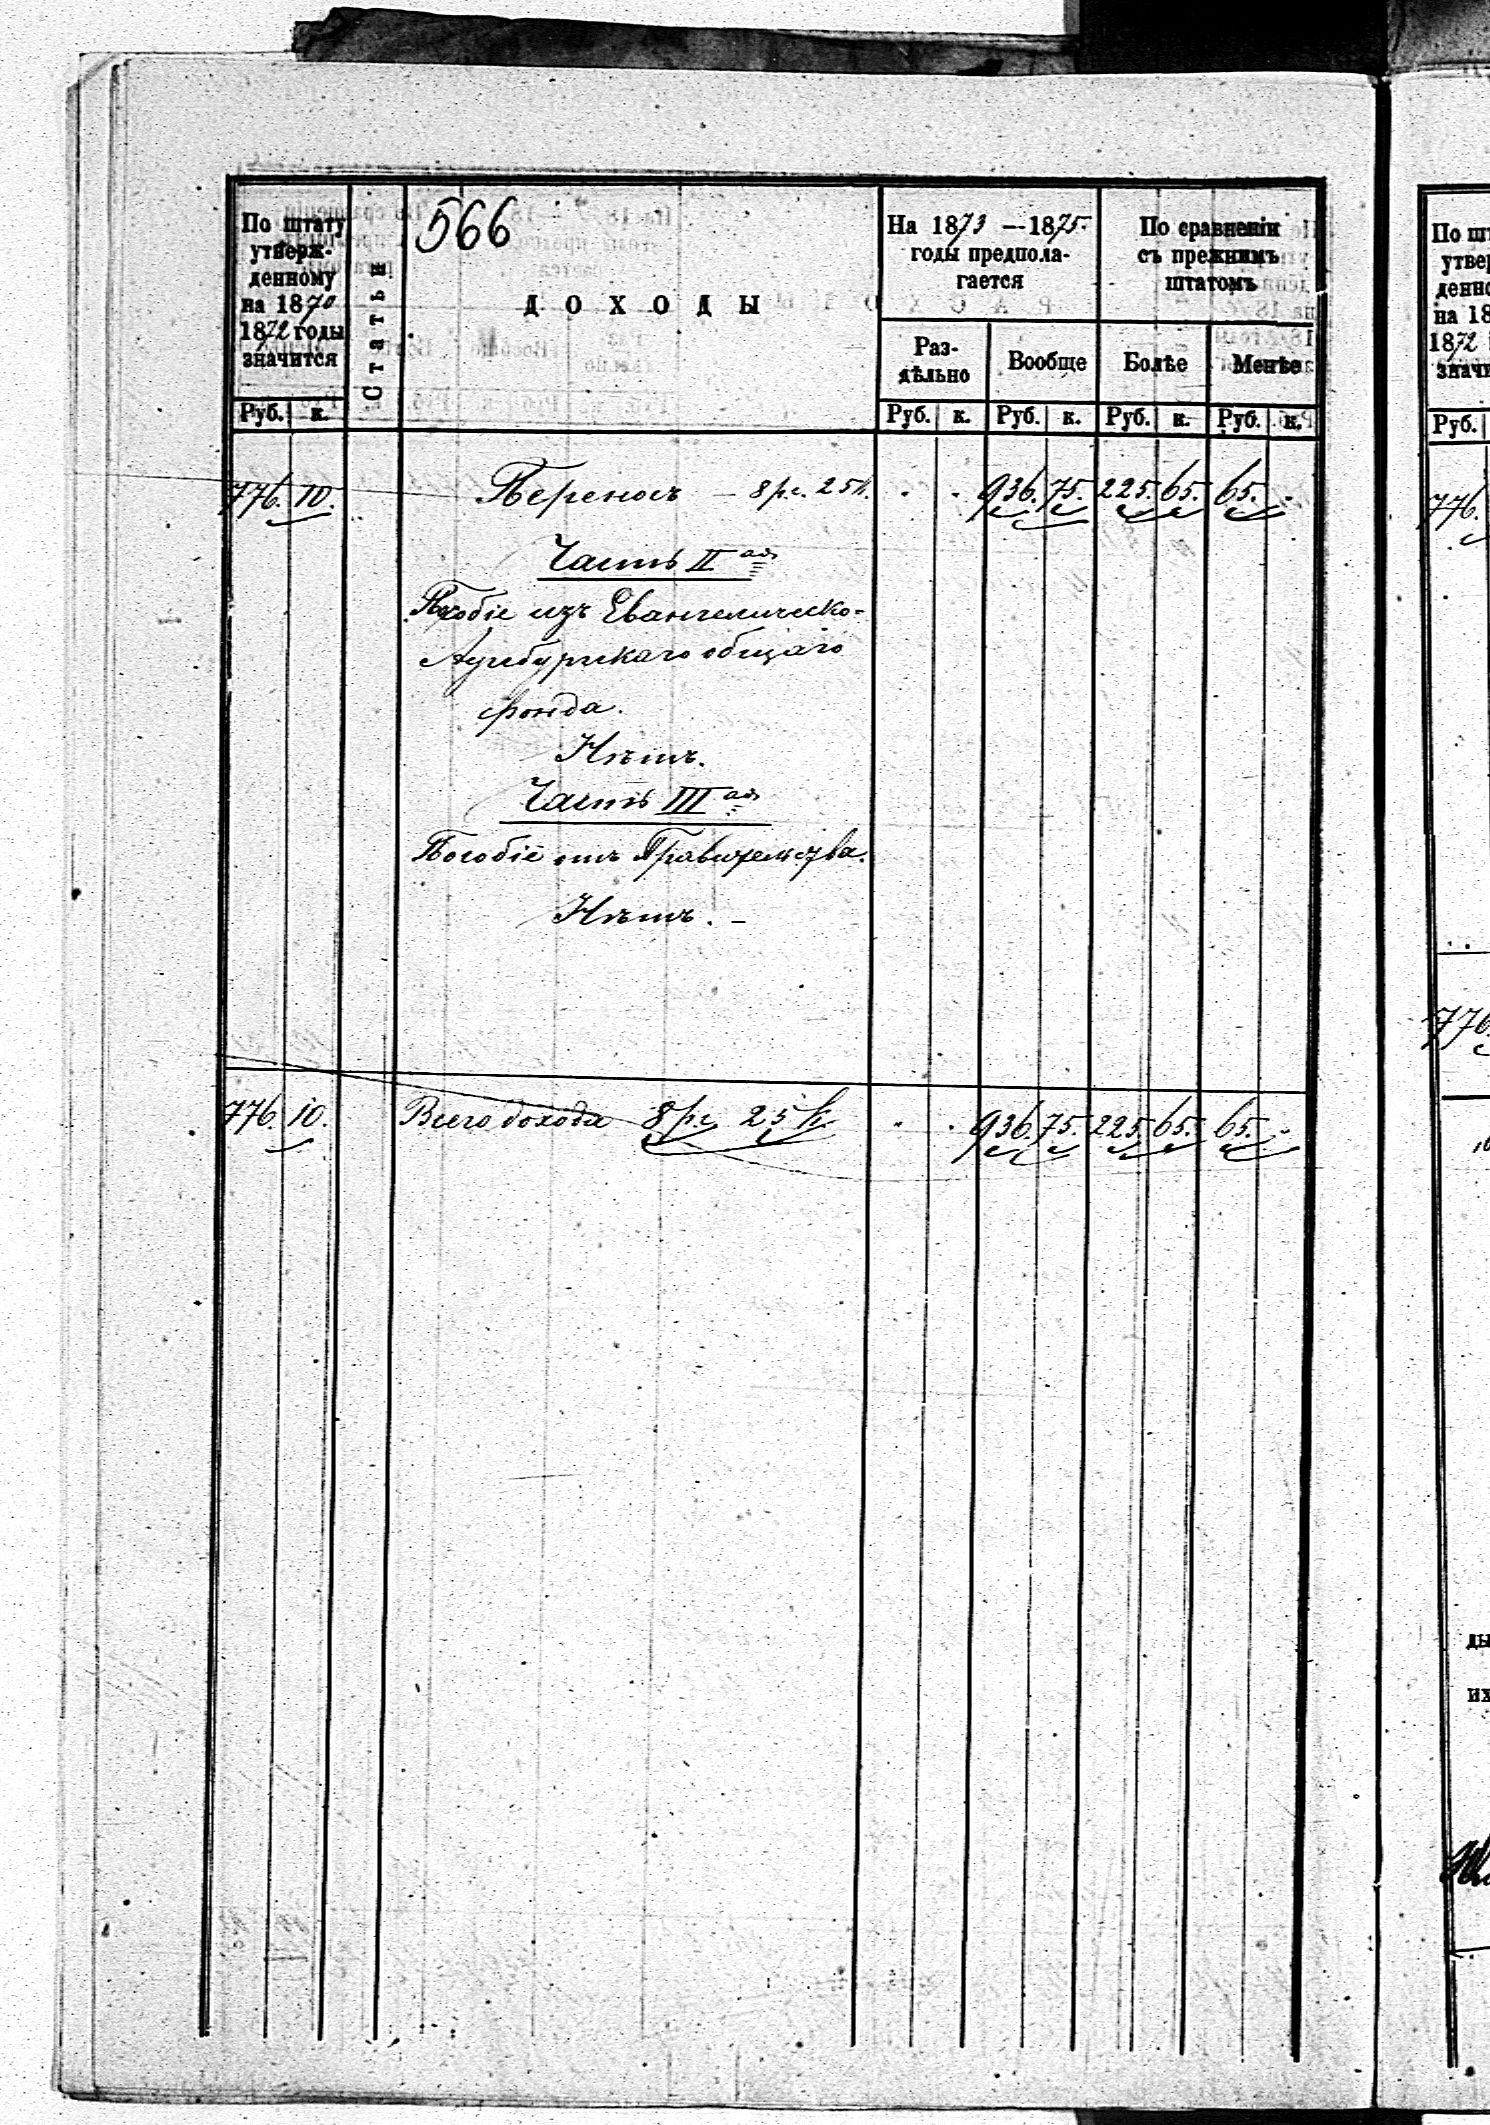 По штату
утверж-
денному
на 1870
1872 годы
значится
Руб. к.
Статьи
566
ДОХОДЫ
На 1873 — 1875
годы предпола-
гается
Раз-
дѣльно
Вообще
Руб. к. Руб. к.
По сравненiи
съ прежнимъ
штатомъ
Болѣе Менѣе
Руб. к. Руб. к.
776. 10. Переносъ — 8 р.с. 25 к. . . 936. 75. 225. 65. 65. .
Часть II ая
Пособiе изъ Евангелическо-
Аугсбургскаго общаго
фонда.
Нѣтъ.
Часть III ая
Пособiе отъ Правительства.
Нѣтъ. —
776. 10. Всего дохода 8 р.с 25 к . . 936. 75. 225. 65. 65. .
По шт
утвер
денно
на 18
1872
значи
Руб.
776.
776.
ды
их